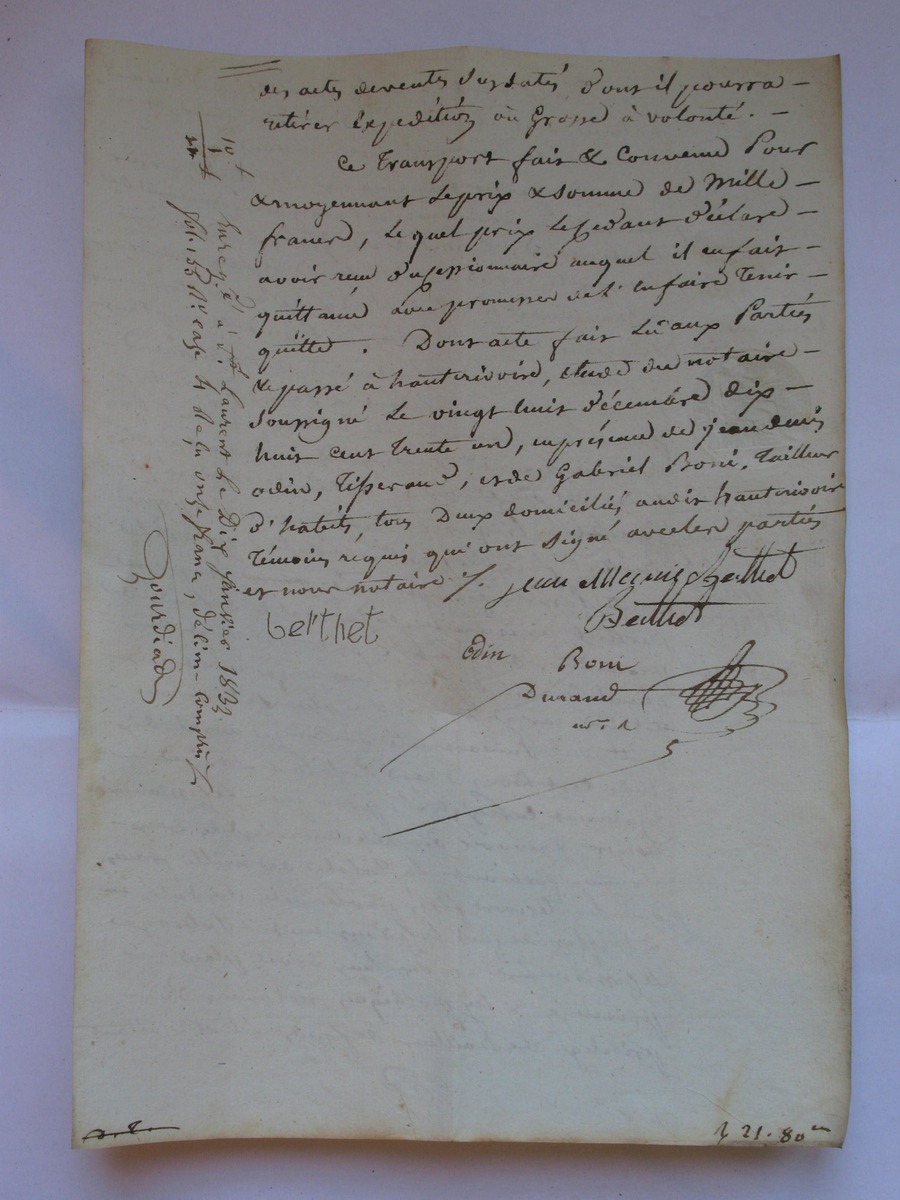 des actes de ventes susdatés dont il pourra —
retirer Expedition ou Grosse à volonté. —
Ce Transport fait & Convenu Pour
& moyennant le prix & somme de Mille —
francs, lequel prix le Cedant déclare —
avoir reçu du cessionnaire auquel il en fait —
quittance avec promesse de l'en faire Tenir —
quitte. Dont acte fait Lu aux Parties
& passé à hauterivoire, étude du notaire —
soussigné le vingt huit décembre dix —
huit cent trente un, en présence de jean denis
odin, Tisserand, et de Gabriel Boni, Tailleur
d'habits, tous Deux domiciliés audit hauterivoire
Témoins requis qui ont signé avec les parties
et nous notaire /. jean Berthet
Berthet
berthet
odin Boni
Durand
nore
Enreg.é à St Laurent le Dix Janvier 1832
fol. 153 Ro case 4 Reçu onze francs, décime Compris /.
10 f
1
11 f
Gourdiad
f 21. 80